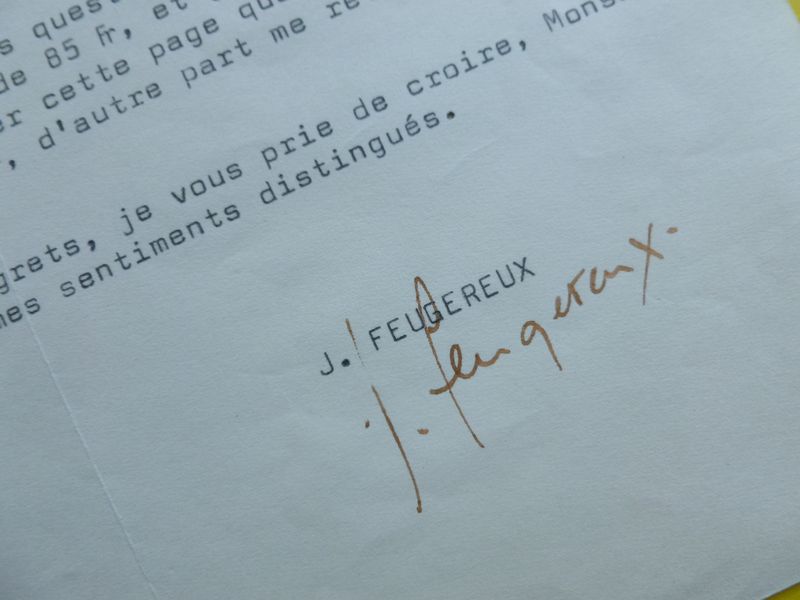 s ques
de 85 Fr, et
er cette page qu
, d'autre part me re
grets, je vous prie de croire, Mons
mes sentiments distingués.
J. FEUGEREUX
J. Feugereux.